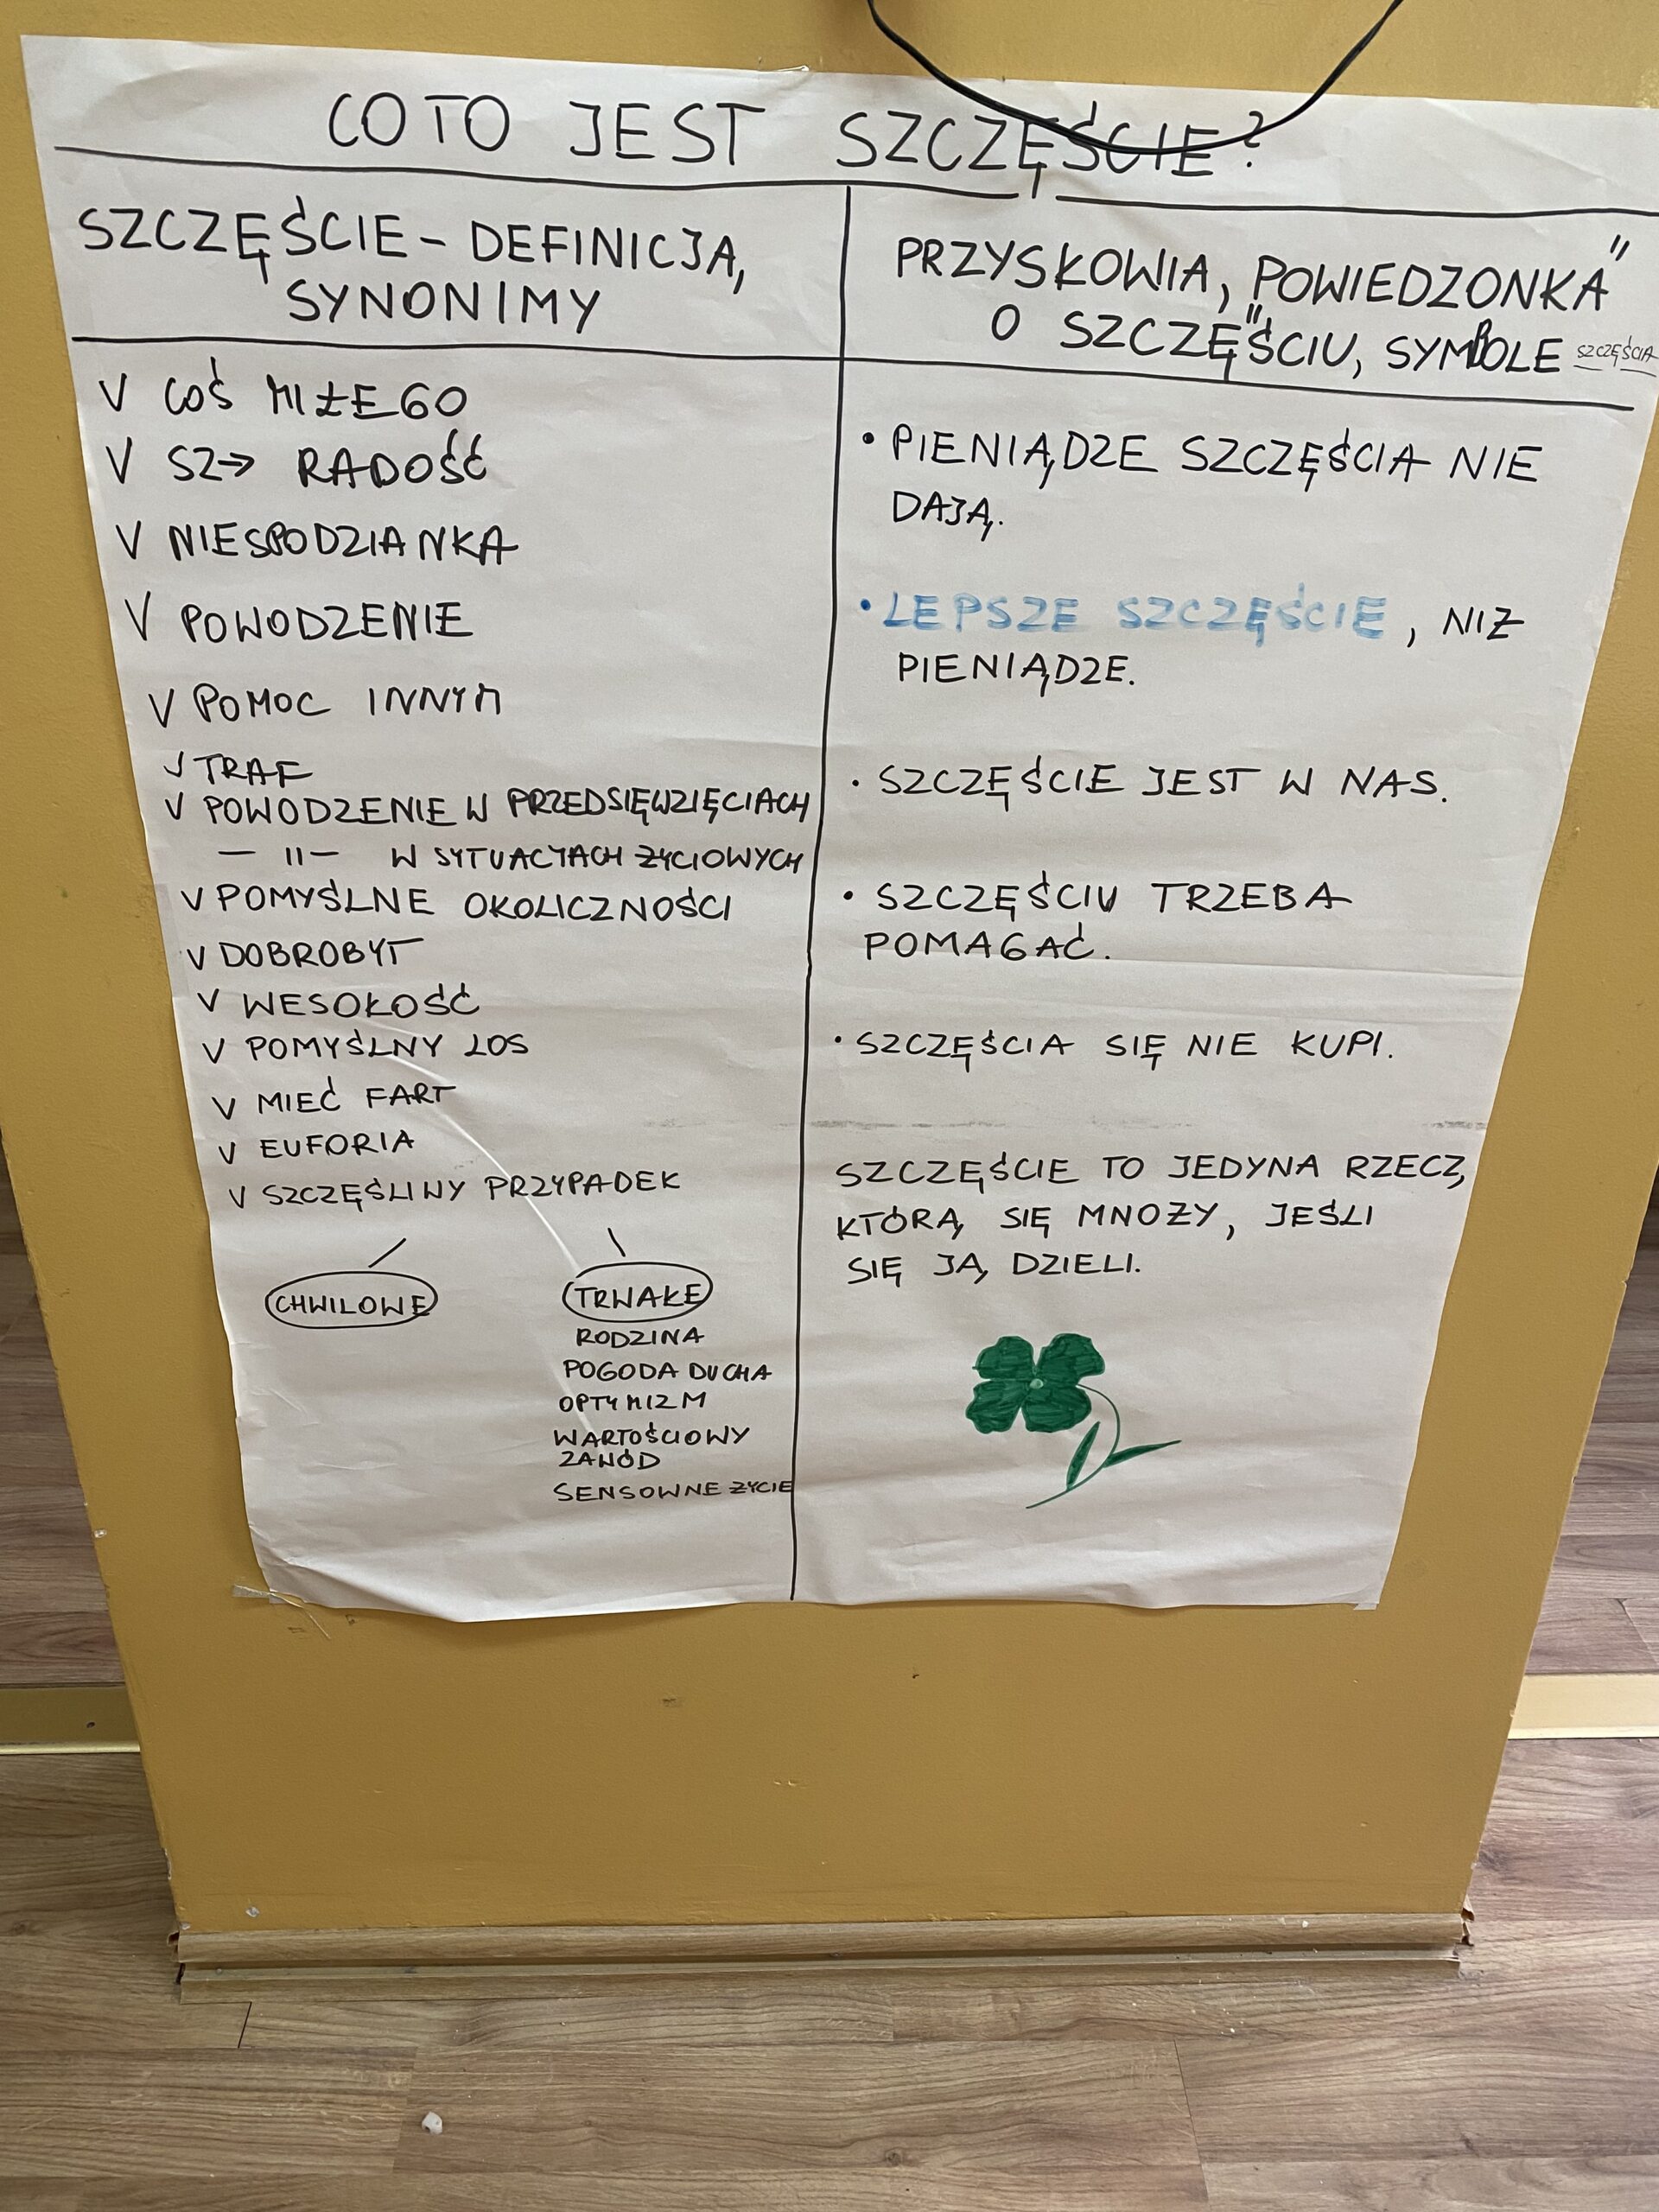 CO TO JEST SZCZĘŚCIE?
SZCZĘŚCIE – DEFINICJA,
SYNONIMY
V COŚ MIŁEGO
V SZ→ RADOŚĆ
V NIESPODZIANKA
V POWODZENIE
V POMOC INNYM
V TRAF
V POWODZENIE W PRZEDSIĘWZIĘCIACH
— II — W SYTUACJACH ŻYCIOWYCH
V POMYŚLNE OKOLICZNOŚCI
V DOBROBYT
V WESOŁOŚĆ
V POMYŚLNY LOS
V MIEĆ FART
V EUFORIA
V SZCZĘŚLIWY PRZYPADEK
CHWILOWE
TRWAŁE
RODZINA
POGODA DUCHA
OPTYMIZM
WARTOŚCIOWY
ZAWÓD
SENSOWNE ŻYCIE
PRZYSŁOWIA, „POWIEDZONKA”
O SZCZĘŚCIU, SYMBOLE SZCZĘŚCIA
• PIENIĄDZE SZCZĘŚCIA NIE
DAJĄ.
• LEPSZE SZCZĘŚCIE, NIŻ
PIENIĄDZE.
• SZCZĘŚCIE JEST W NAS.
• SZCZĘŚCIU TRZEBA
POMAGAĆ.
• SZCZĘŚCIA SIĘ NIE KUPI.
SZCZĘŚCIE TO JEDYNA RZECZ,
KTÓRĄ SIĘ MNOŻY, JEŚLI
SIĘ JĄ DZIELI.